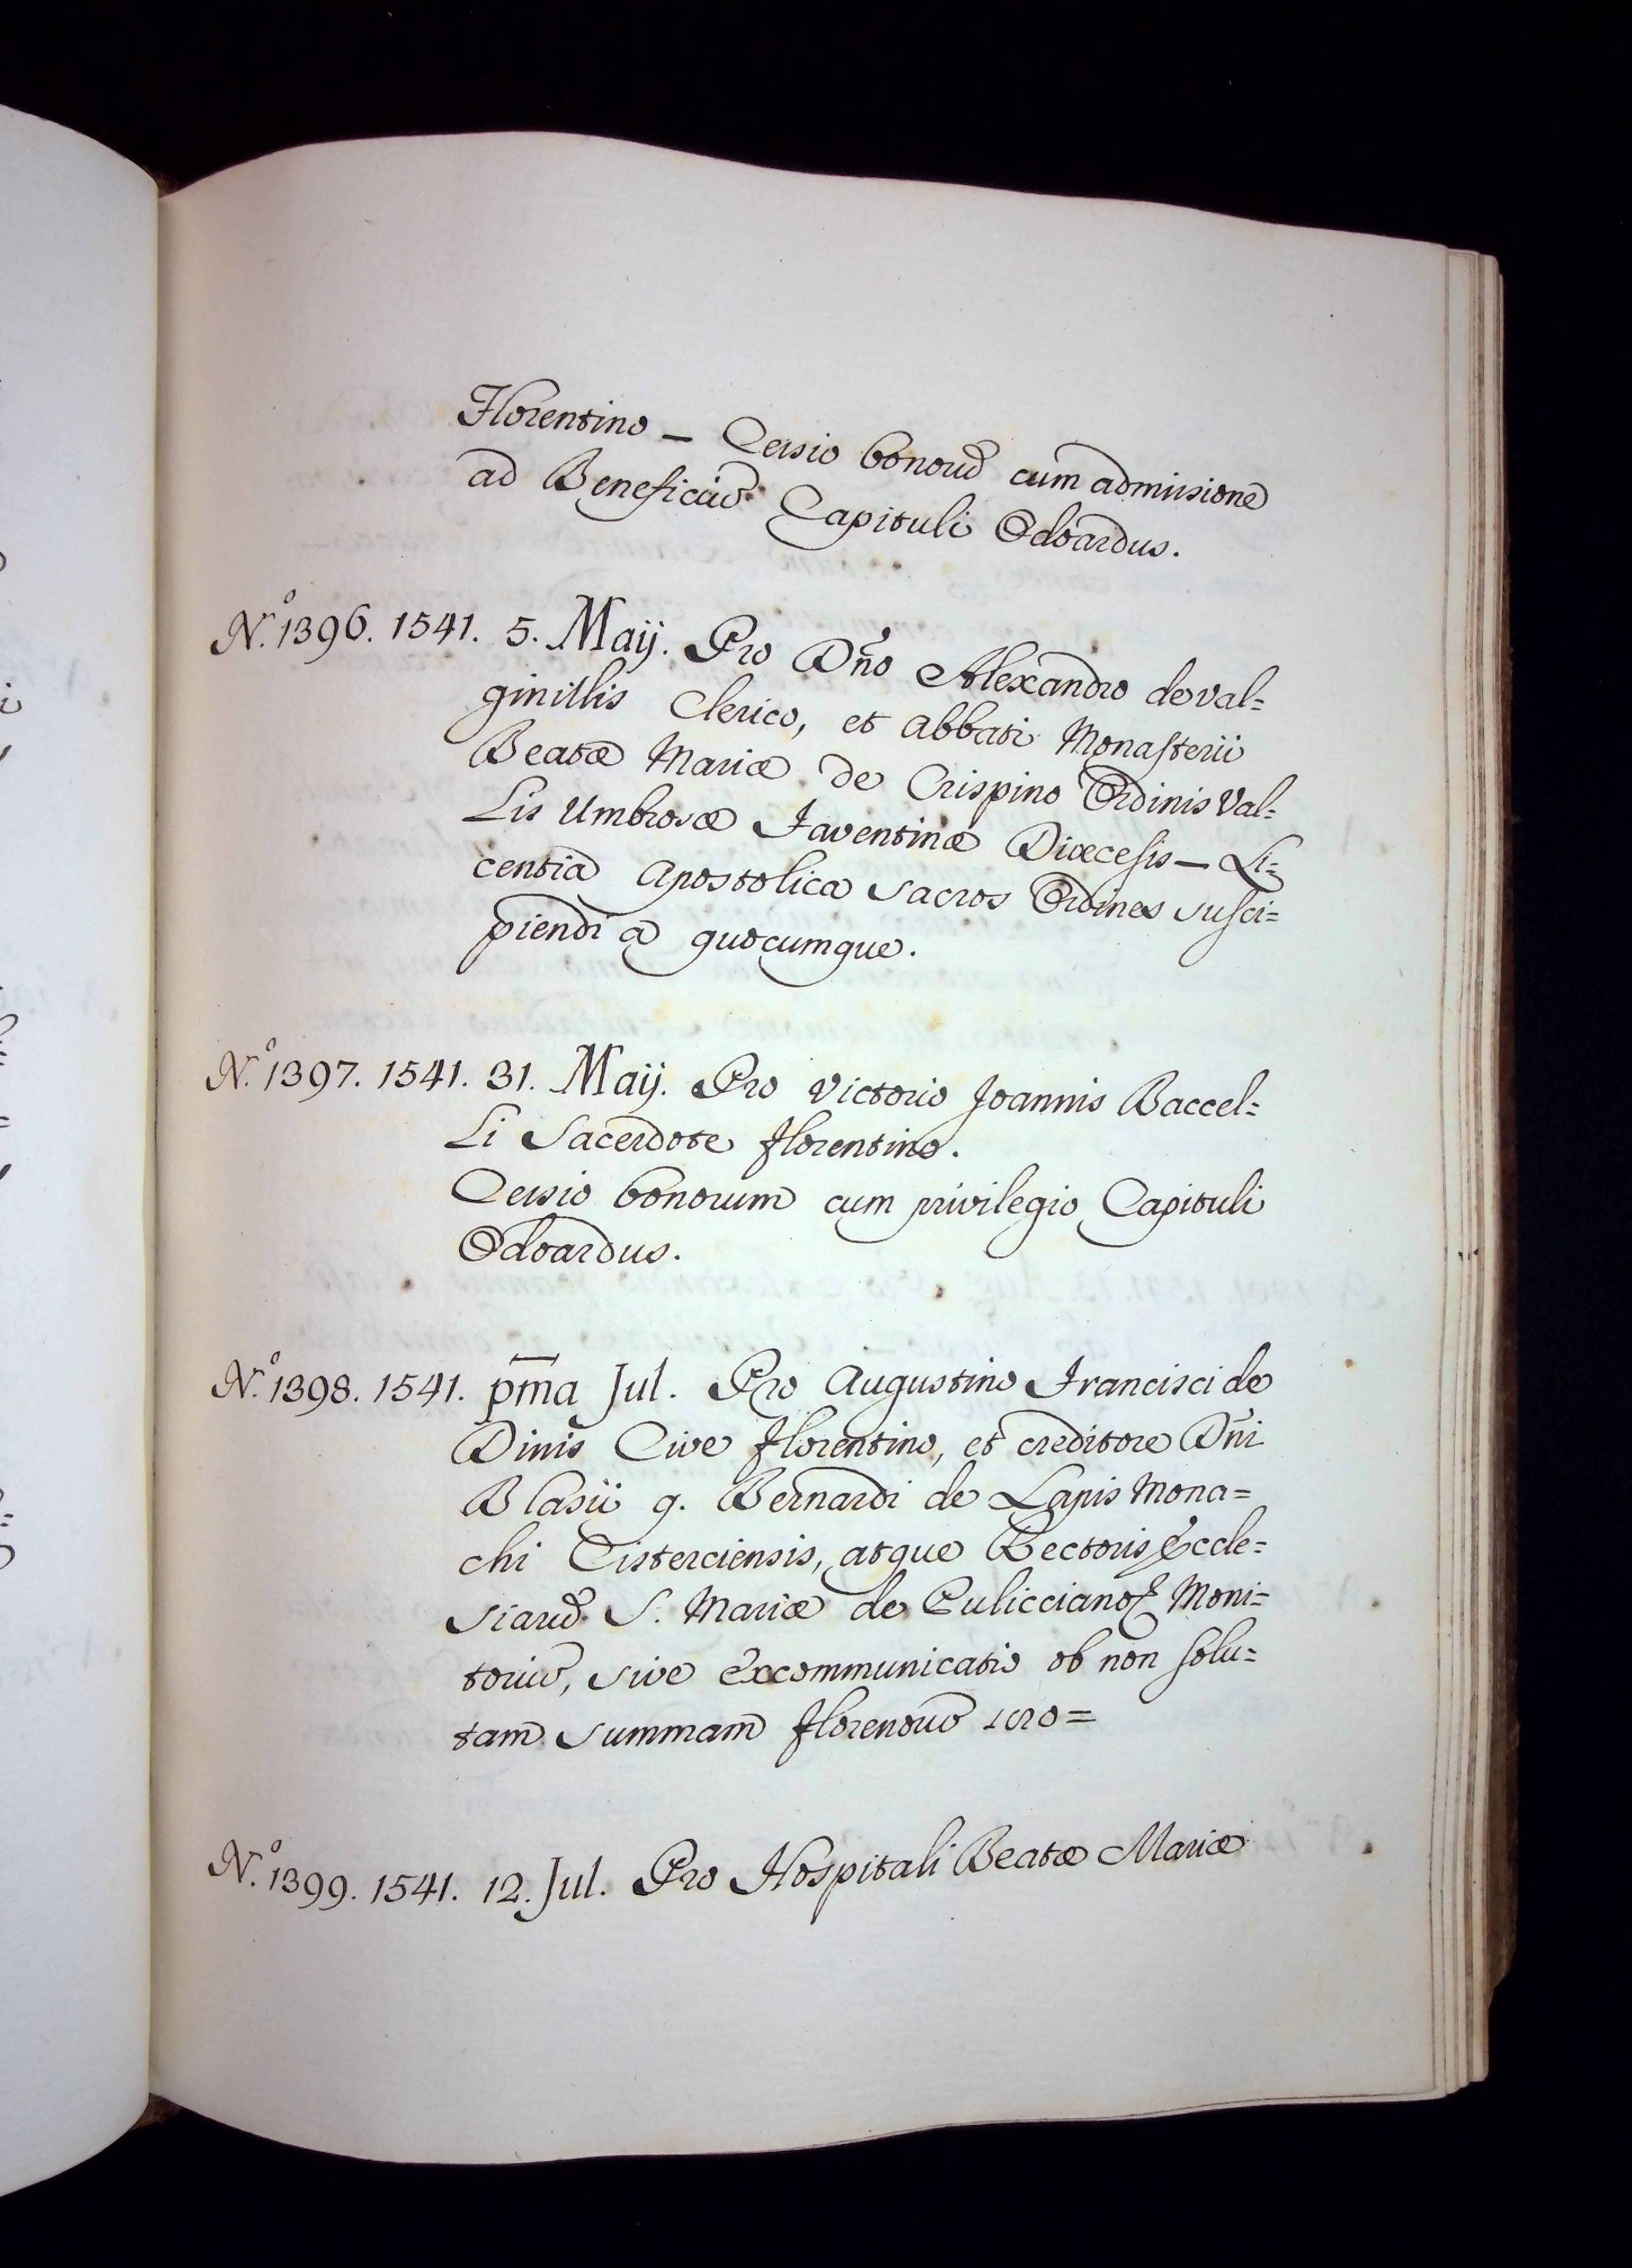 Florentino — Cessio bonorū cum admissione
ad Beneficiū Capituli Odoardus.
N.º 1396. 1541. 5. Maij. Pro Dño Alexandro de Val=
ginillis Clerico, et abbati Monasterii
Beatæ Mariæ de Crispino Ordinis Val=
lis Umbrosæ Faventinæ Diœcesis — Li=
centia apostolica sacros Ordines susci=
piendi a quocumque.
N.º 1397. 1541. 31. Maij. Pro Victorio Joannis Baccel=
li Sacerdote florentino.
Cessio bonorum cum privilegio Capituli
Odoardus.
N.º 1398. 1541. pm̄a Jul. Pro Augustino Francisci de
Dinis Cive florentino, et creditore Dñi
Blasii q. Bernardi de Lapis Mona=
chi Cisterciensis, atque Rectoris Eccle=
siarū S. Mariæ de Pulicciano Moni=
toriū, sive excommunicatio ob non solu=
tam summam florenoū
N.º 1399. 1541. 12. Jul. Pro Hospitali Beatæ Mariæ